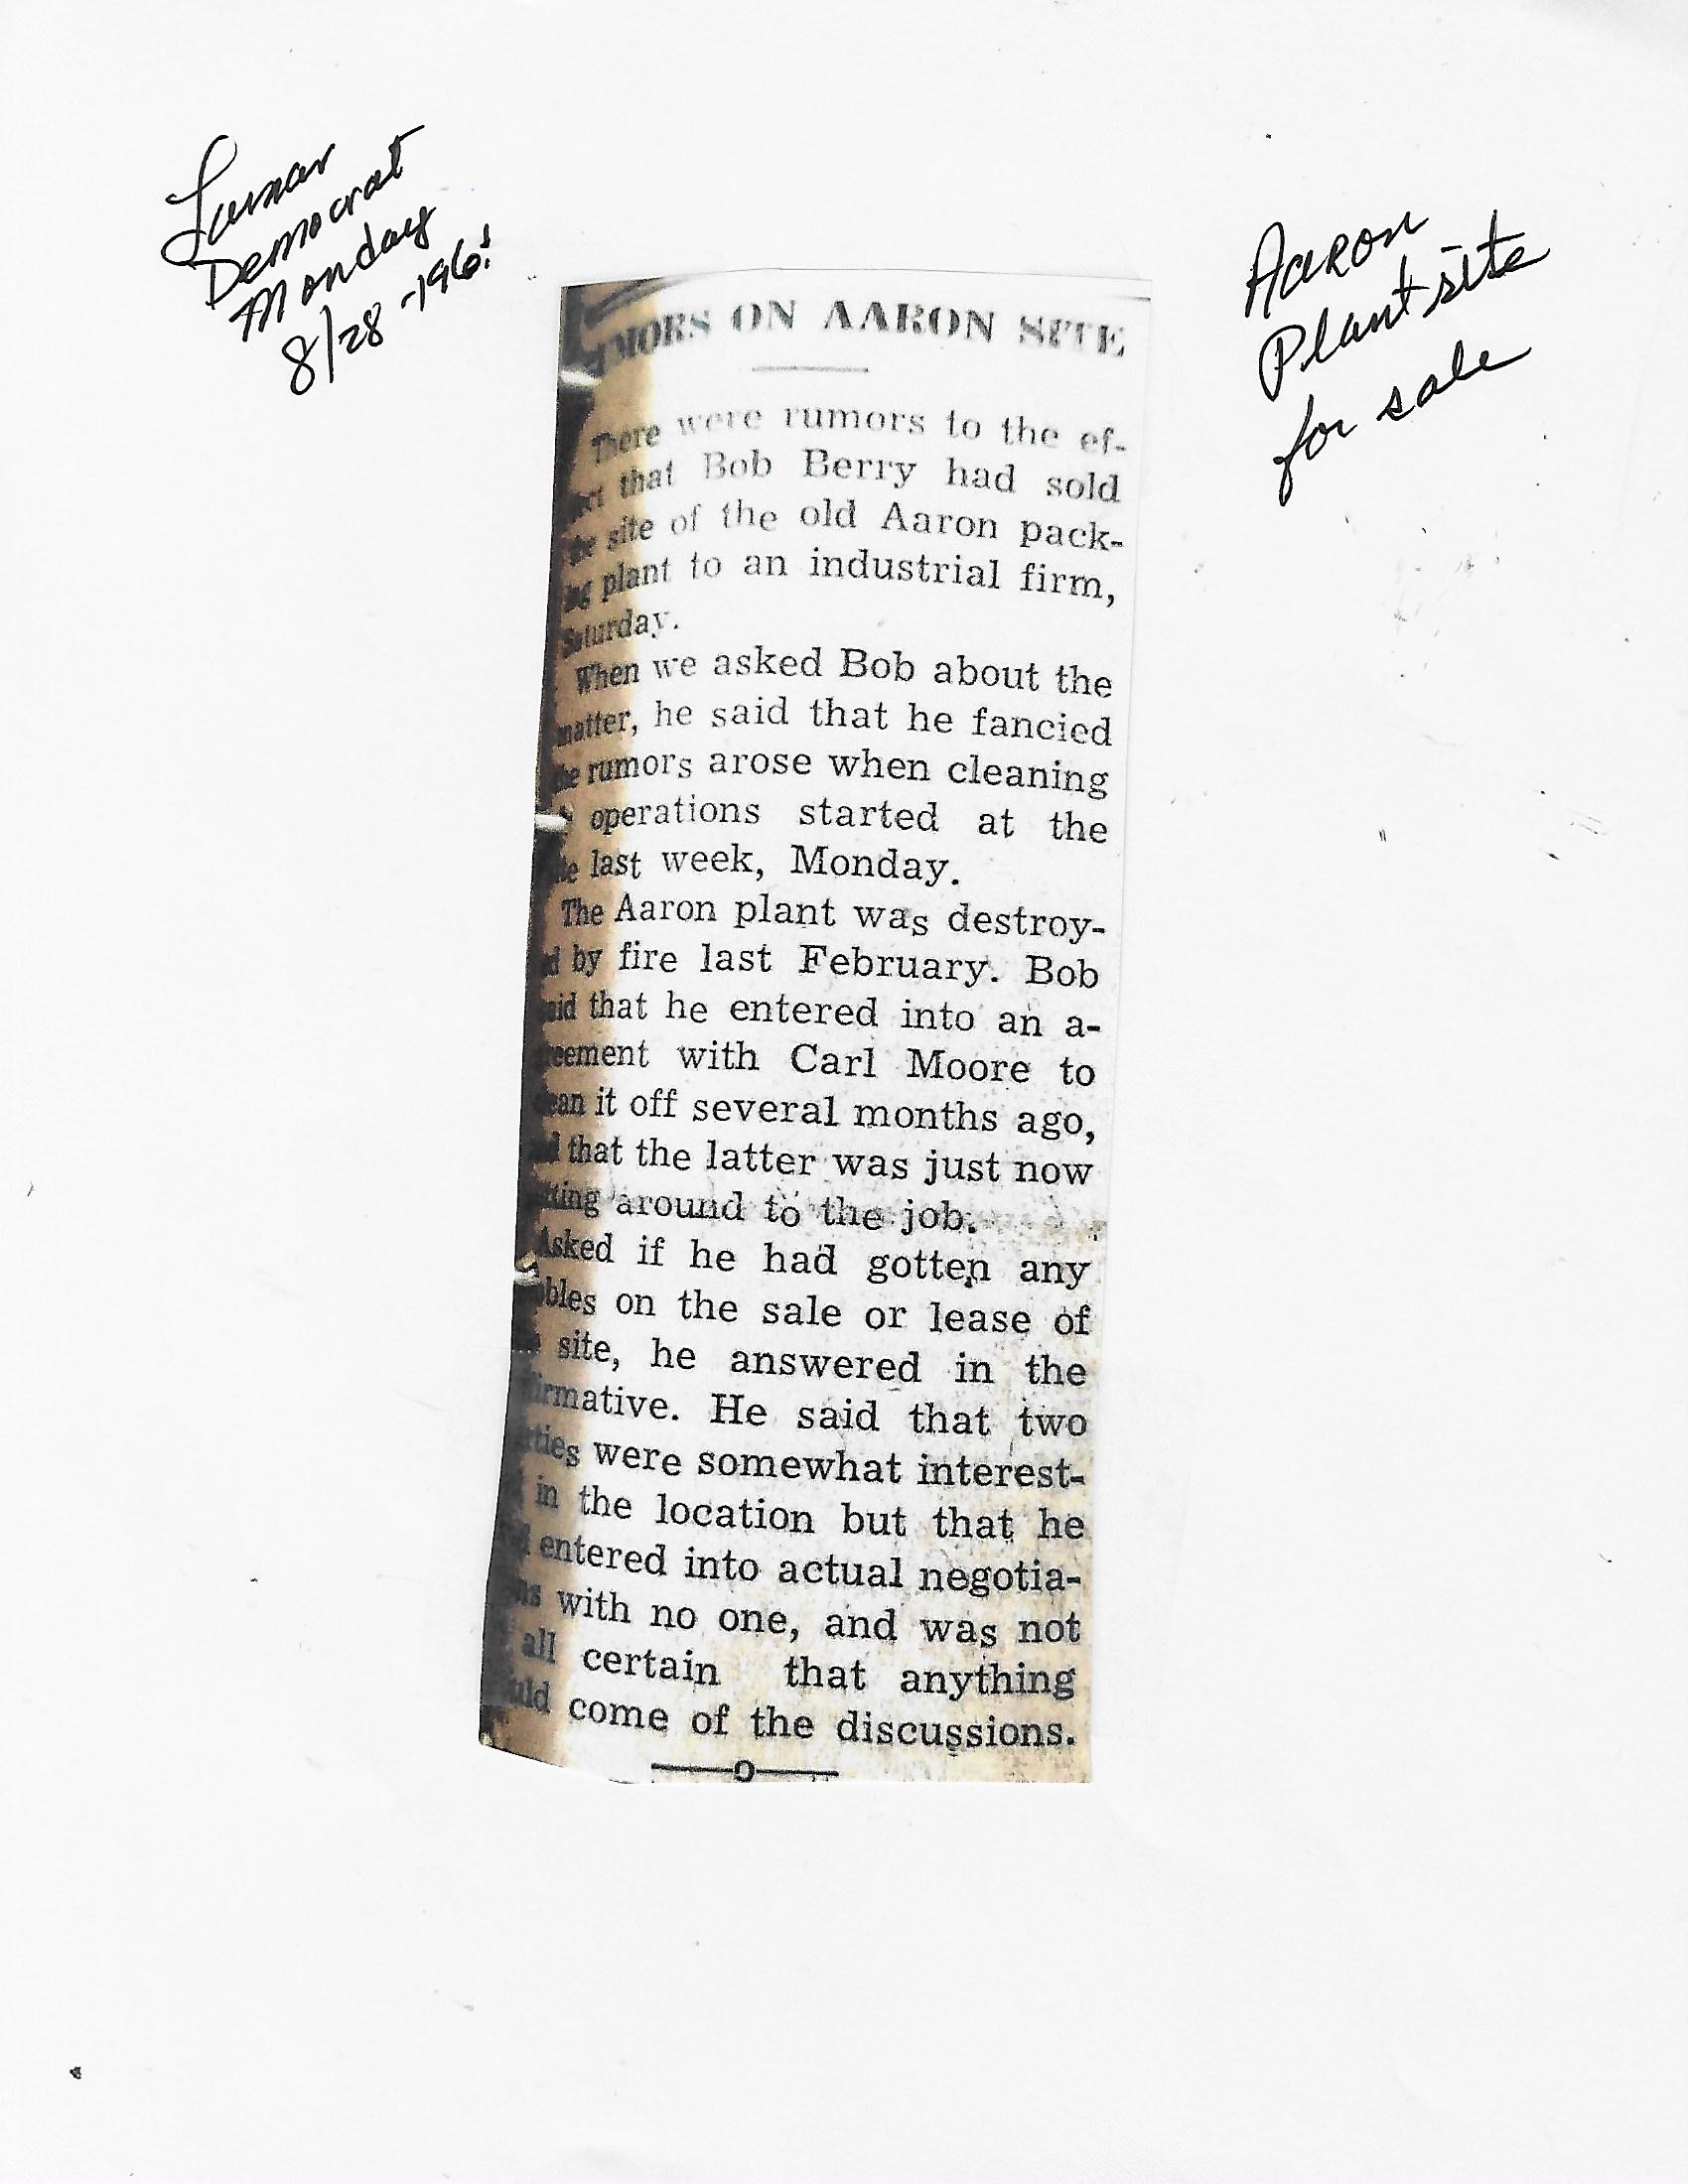 Lamar
Democrat
Monday
8/28-196
Aaron
Plant site
for sale
MORS ON AARON SITE
There were rumors to the ef-
that Bob Berry had sold
the site of the old Aaron pack-
ing plant to an industrial firm,
Saturday.
When we asked Bob about the
matter, he said that he fancied
the rumors arose when cleaning
operations started at the
last week, Monday.
The Aaron plant was destroy-
ed by fire last February. Bob
said that he entered into an a-
reement with Carl Moore to
ean it off several months ago,
that the latter was just now
tting around to the job.
Asked if he had gotten any
bbles on the sale or lease of
site, he answered in the
firmative. He said that two
rties were somewhat interest-
in the location but that he
entered into actual negotia-
ns with no one, and was not
all certain that anything
uld come of the discussions.